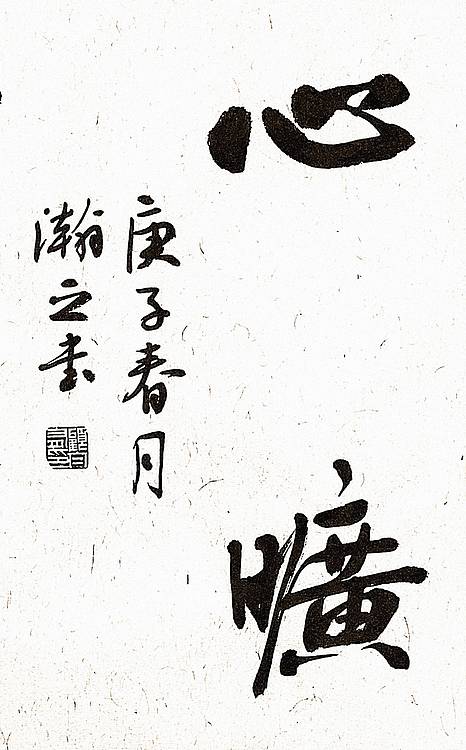 心曠
庚子春月
瀚之书